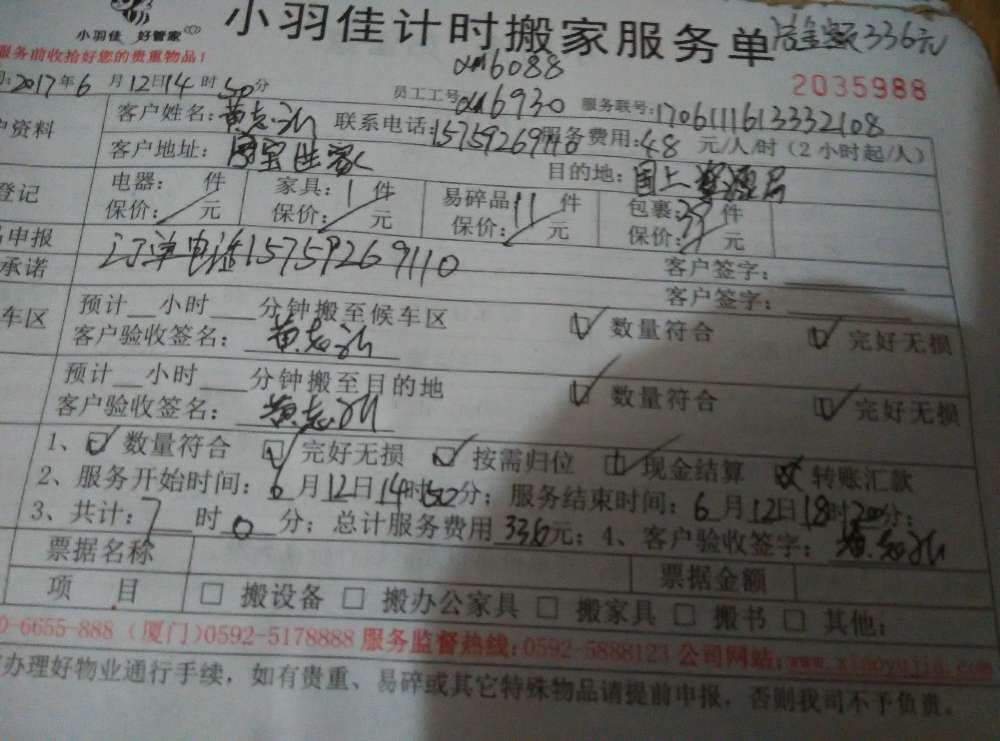 小羽佳计时搬家服务单
336元
小羽佳 好管家
服务前收拾好您的贵重物品！
6088
2035988
2017年6月12日14时50分 员工工号: 6930 服务联号:1706111613332108
户资料 客户姓名: 黄志 联系电话:15759269110 服务费用:48元/人/时（2小时起/人）
客户地址: 目的地: 国土资源局
登记 电器: 件 家具:1件 易碎品:11件 包裹:37件
保价: 元 保价: 元 保价: 元 保价: 元
申报 订单电话15759269110 客户签字:
承诺 客户签字:
车区 预计__小时___分钟搬至候车区 数量符合 完好无损
客户验收签名: 黄志
预计__小时___分钟搬至目的地 数量符合 完好无损
客户验收签名: 黄志
1、数量符合 完好无损 按需归位 现金结算 转账汇款
2、服务开始时间: 6月12日14时50分; 服务结束时间: 6月12日18时20分;
3、共计: 7时0分; 总计服务费用336元; 4、客户验收签字: 黄志
票据名称 票据金额
项 目 □ 搬设备 □ 搬办公家具 □ 搬家具 □ 搬书 □ 其他:
0-6655-888（厦门）0592-5178888 服务监督热线:0592-5888123 公司网站:www.xiaoyujia.com
办理好物业通行手续，如有贵重、易碎或其它特殊物品请提前申报，否则我司不予负责。